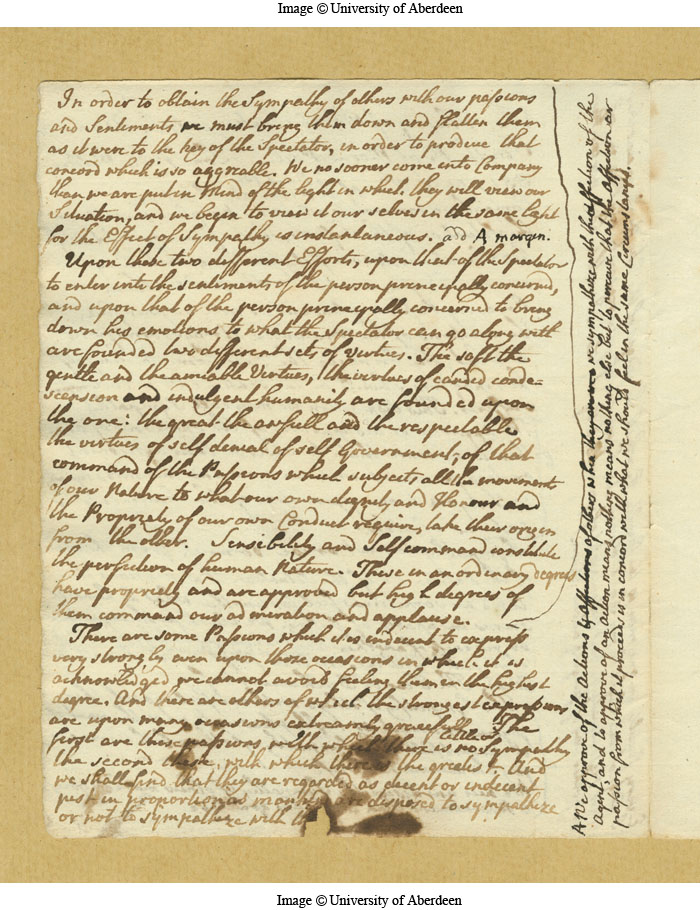 Image © University of Aberdeen
In order to obtain the Sympathy of others with our passions
and Sentiments we must bring them down and flatten them
as it were to the key of the Spectator, in order to produce that
concord which is so aggreeable. We no sooner come into Company
than we are put in Mind of the light in which they will view our
Situation, and we begin to view it our selves in the same light
for the Effect of Sympathy is instantaneous. add A margin.
Upon these two different Efforts, upon that of the Spectator
to enter into the sentiments of the person principally concerned,
and upon that of the person principally concerned to bring
down his emotions to what the spectator can go along with
are founded two different sets of virtues. The soft the
gentle and the amiable Virtues, the virtues of candid conde-
scension and indulgent humanity are founded upon
the one: the great the awfull and the respectable
the virtues of self denial of self Government, of that
command of the Passions which subjects all the movements
of our Nature to what our own dignity and Honour and
the Propriety of our own Conduct require, take their origin
from the other. Sensibility and Self command constitute
the perfection of human Nature. These in an ordinary degrees
have propriety and are approved but high degrees of
them command our admiration and applause.
There are some Passions which it is indecent to express
very strongly even upon those occasions in which it is
acknowledged we cannot avoid feeling them in the highest
degree. And there are others of which the strongest expressions
are upon many occasions extreamly gracefull. The
first are these passions with which there is little or no Sympathy
the second these, with which there is the greatest. And
we shall find that they are regarded as decent or indecent
just in proportion as mankind are disposed to sympathize
or not to sympathize with
A We approve of the Actions & affections of others when we sympathize with the affection of the
agent, and to approve of an action means nothing else but to perceive that the affection or
passion from which it proceeds is in concord with what we should feel in the same Circumstances.
Image © University of Aberdeen